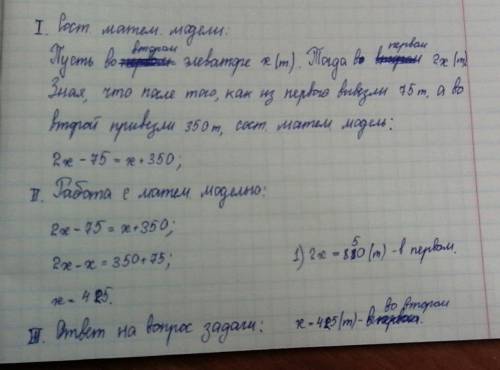 I. Сост. матем. модели:
Пусть во втором элеваторе x (т). Тогда в первом 2x (т)
Зная, что после того, как из первого вывезли 75 т, а во
второй привезли 350 т, сост. матем модель:
2x - 75 = x + 350;
II. Работа с матем. моделью:
2x - 75 = x + 350;
2x - x = 350 + 75;
1) 2x = 850 (т) - в первом.
x = 425.
III. Ответ на вопрос задачи: x = 425 (т) - во втором.